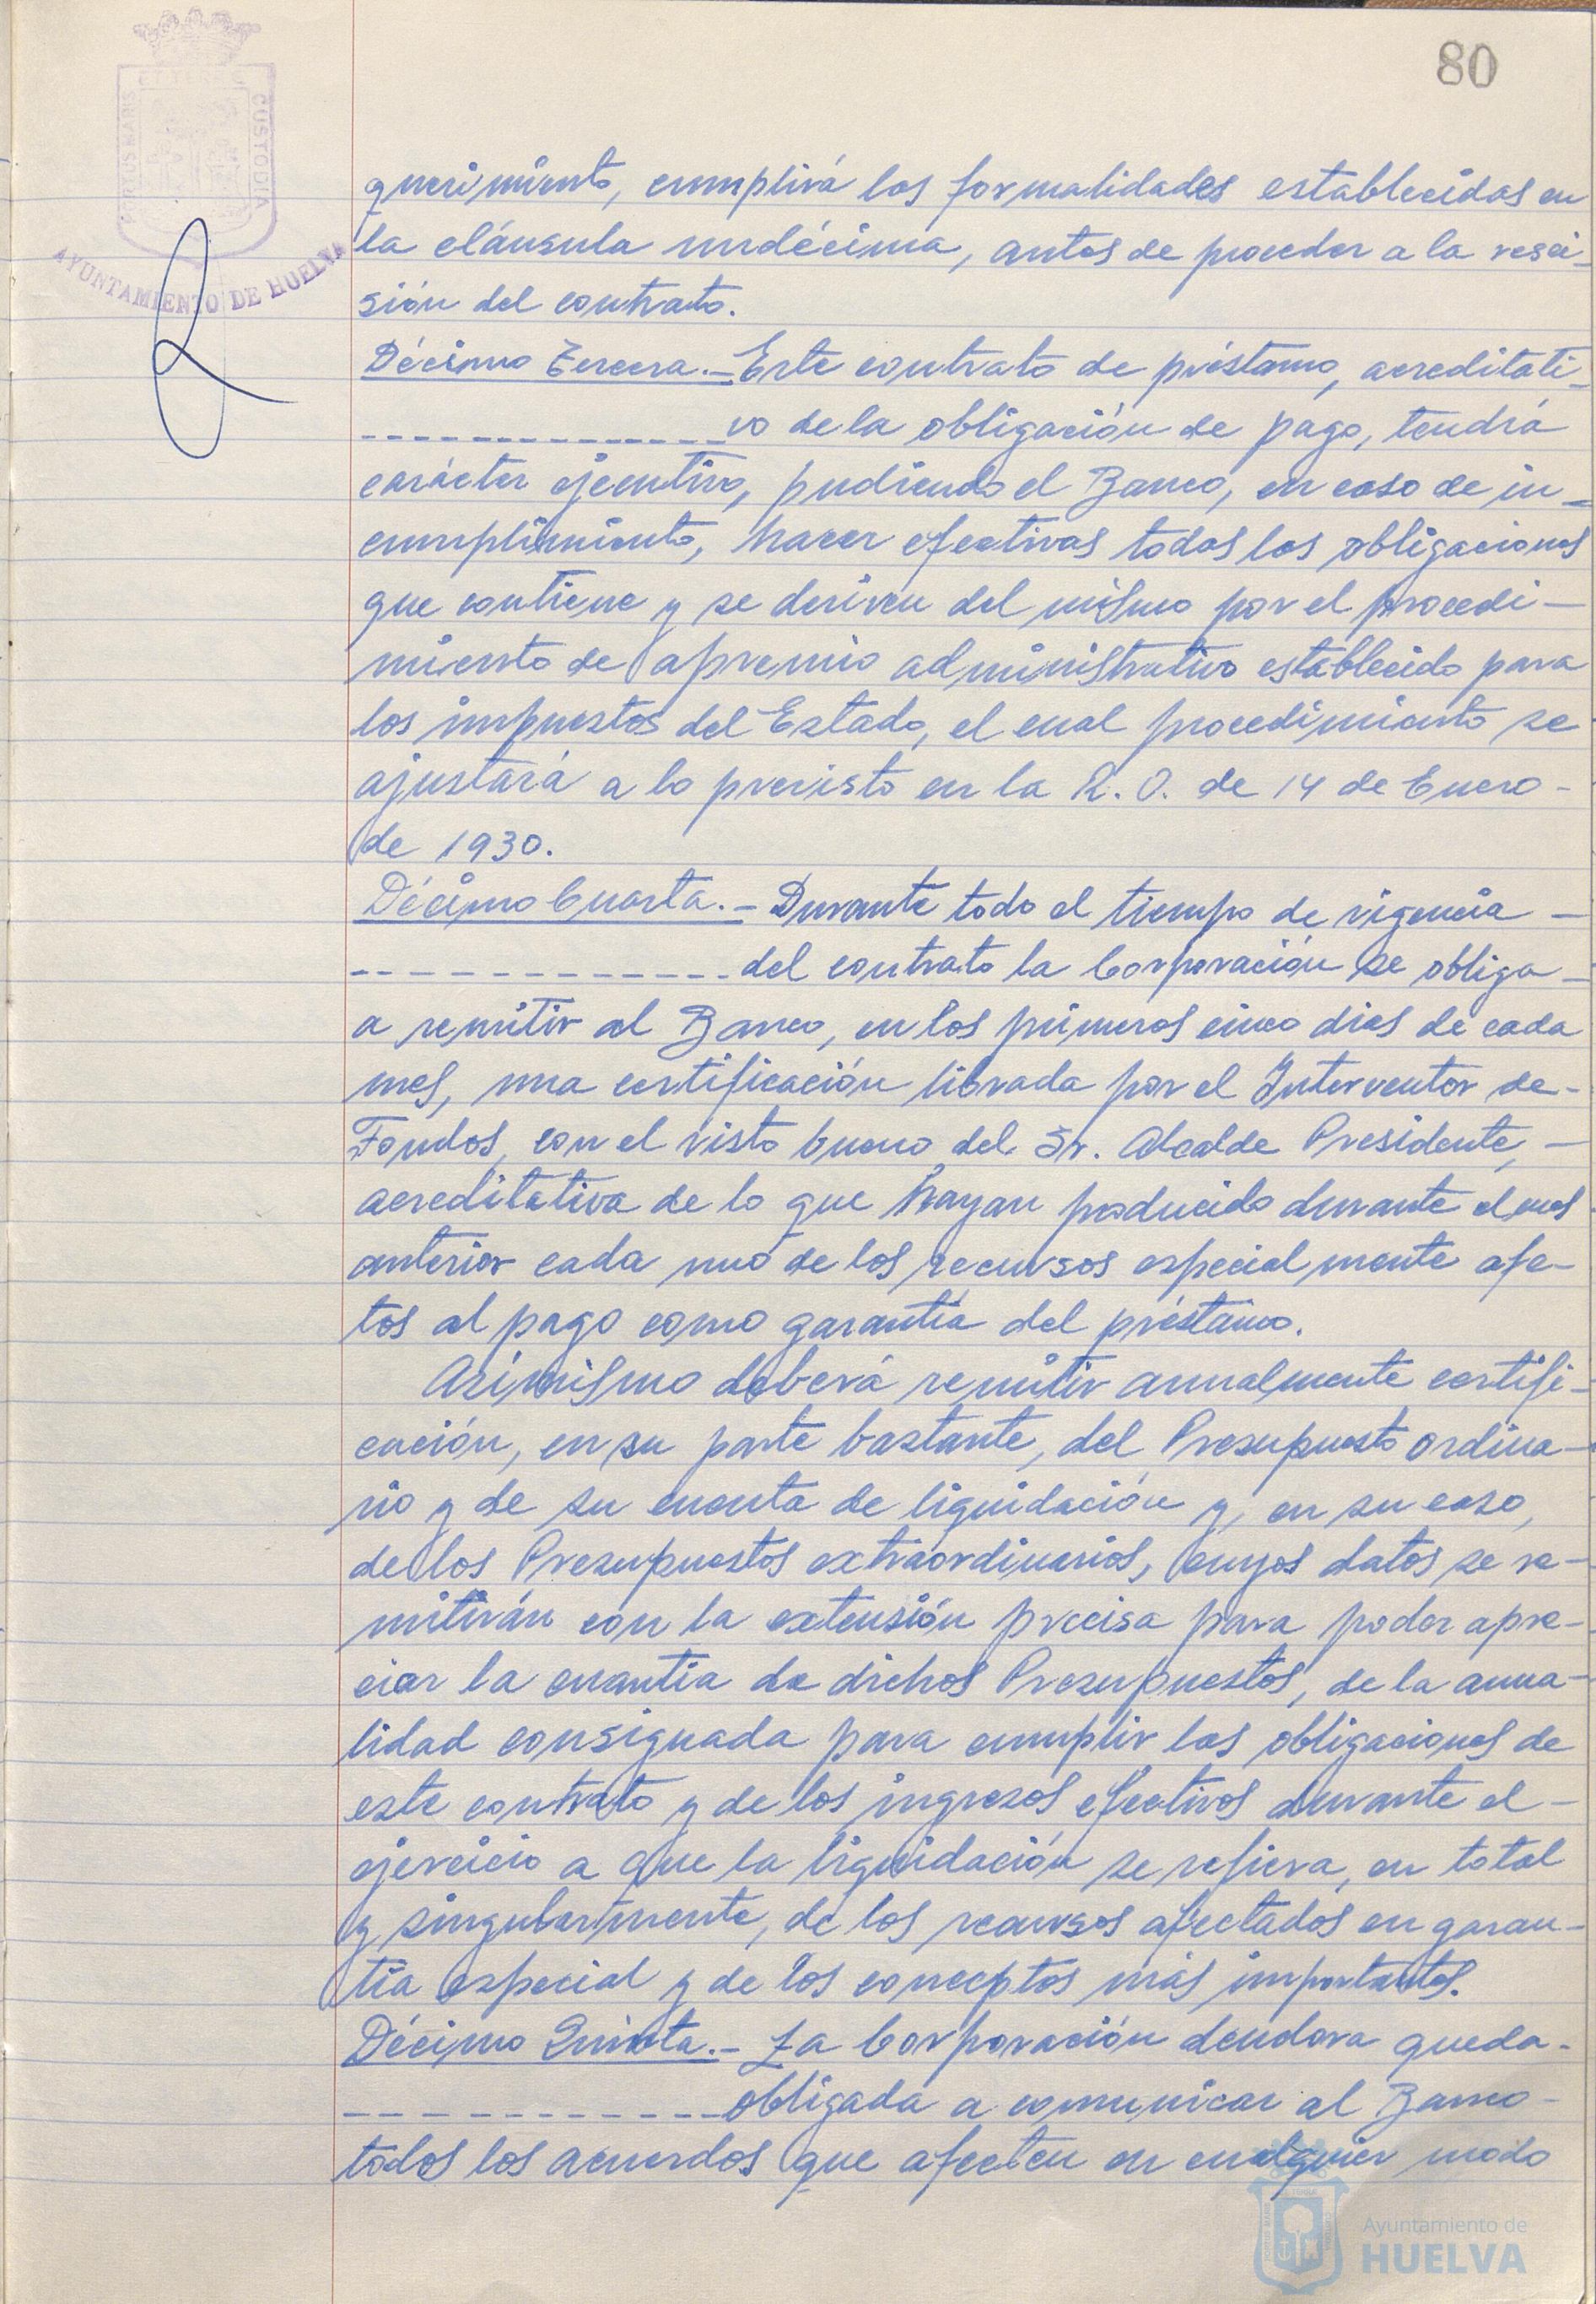 80
PORTUS MARIS
ET TERRE
CUSTODIA
AYUNTAMIENTO DE HUELVA
querimiento, cumplirá las formalidades establecidas en
la cláusula undécima, antes de proceder a la resci-
sión del contrato.
Décimo Tercera.- Este contrato de préstamo, acreditati-
vo de la obligación de pago, tendrá
carácter ejecutivo, pudiendo el Banco, en caso de in-
cumplimiento, hacer efectivas todas las obligaciones
que contiene y se deriven del mismo por el procedi-
miento de apremio administrativo establecido para
los impuestos del Estado, el cual procedimiento se
ajustará a lo previsto en la R. O. de 14 de Enero -
de 1930.
Décimo Cuarta.- Durante todo el tiempo de vigencia -
del contrato la Corporación se obliga -
a remitir al Banco, en los primeros cinco dias de cada
mes, una certificación librada por el Interventor de-
Fondos, con el visto bueno del Sr. Alcalde Presidente, -
acreditativa de lo que hayan producido durante el mes
anterior cada uno de los recursos especialmente afe-
tos al pago como garantía del préstamo.
Asimismo deberá remitir anualmente certifi-
cación, en su parte bastante, del Presupuesto ordina-
rio y de su cuenta de liquidación y, en su caso,
de los Presupuestos extraordinarios, cuyos datos se re-
mitirán con la extensión precisa para poder apre-
ciar la cuantia de dichos Presupuestos, de la anua-
lidad consignada para cumplir las obligaciones de
este contrato y de los ingresos efectivos durante el -
ejercicio a que la liquidación se refiera, en total
y singularmente, de los recursos afectados en garan-
tía especial y de los conceptos más importantes.
Décimo Quinta.- La Corporación deudora queda-
obligada a comunicar al Banco -
todos los acuerdos que afecten en cualquier modo
Ayuntamiento de
HUELVA